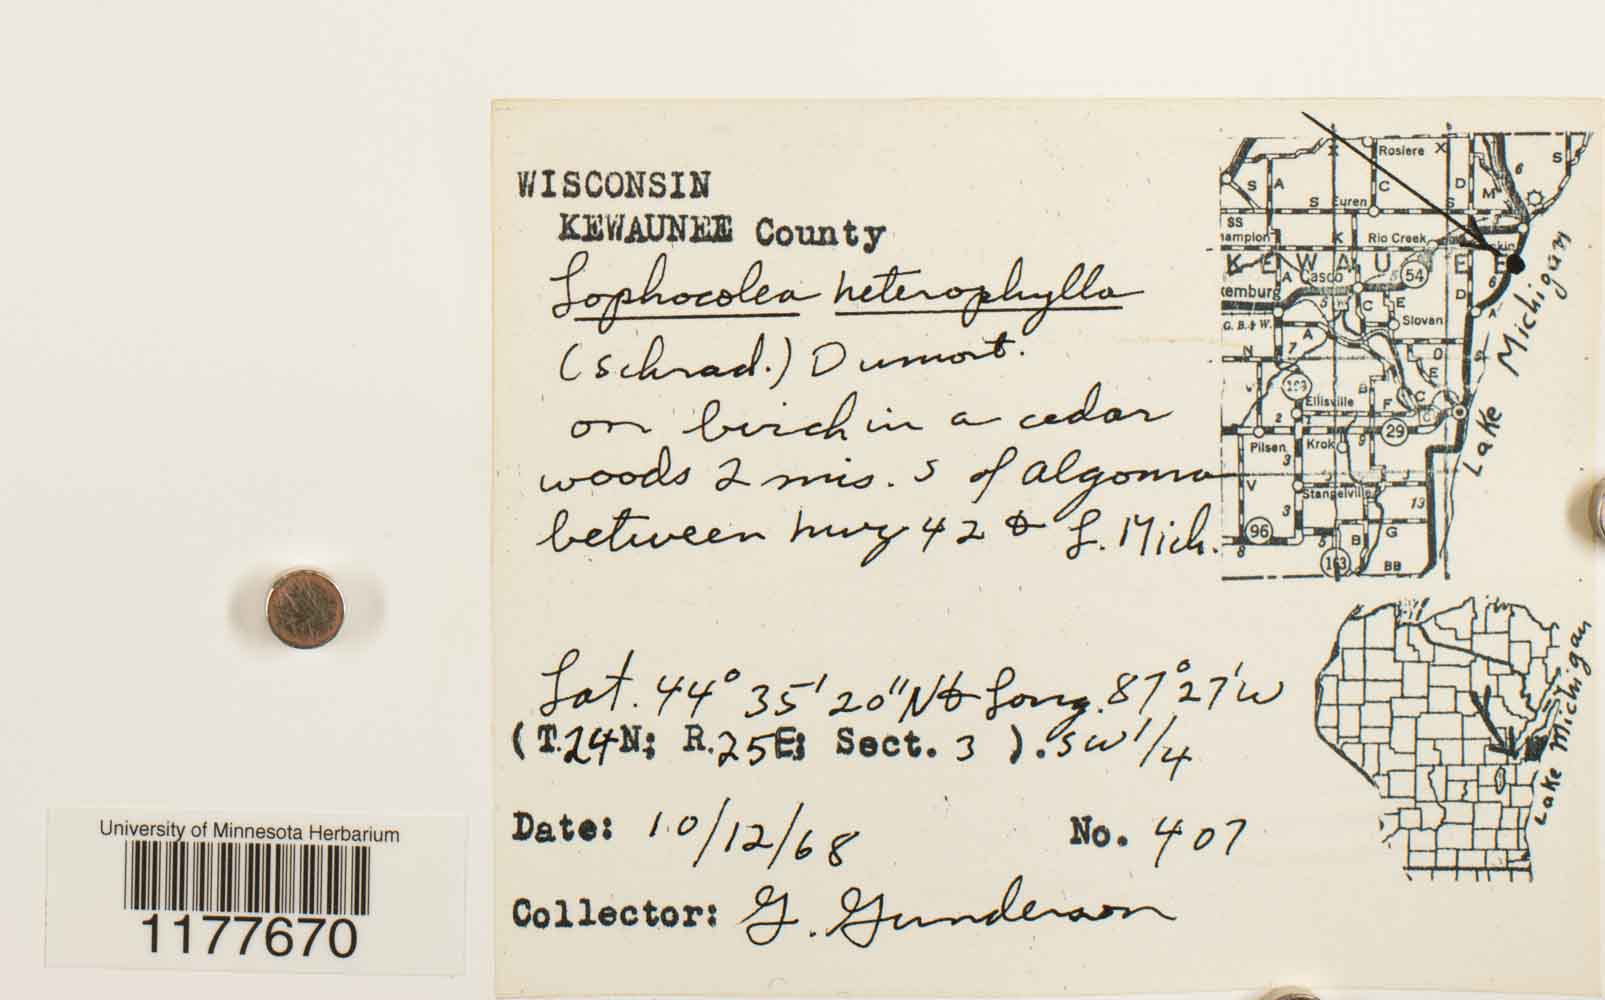 WISCONSIN
KEWAUNEE County
Lophocolea heterophylla
(Schrad.) Dumort.
on birch in a cedar
woods 2 mis. S of Algoma
between hwy 42 & L. Mich.
Lat. 44° 35' 20" N & Long. 87° 27' W
(T.24N; R.25E; Sect. 3 ). SW 1/4
Date: 10/12/68 No. 407
Collector: G. Gunderson
University of Minnesota Herbarium
1177670
Rosiere X
S A C D M 6 S
S Euren S
SS
K Rio Creek
KEWAUNEE
A Casco 54 D 6
C E A
G.B.& W. A Slovan
N 7 O
E
Ellisville B F C
2 9 29
Pilsen Krok
3
V Stangelville 13
3
96 5 B G
8 163 BB
Lake Michigan
Lake Michigan